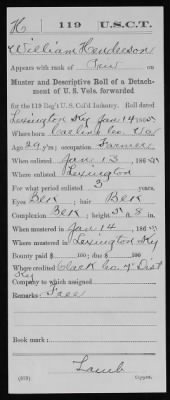 H | 119 | U.S.C.T.
William Henderson
Appears with rank of Priv on
Muster and Descriptive Roll of a Detachment
of U. S. Vols. forwarded
for the 119 Reg't U.S. Col'd Infantry. Roll dated
Lexington Ky Jan 14 1865
Where born Caroline Co. Va
Age 29 y'rs; occupation Farmer
When enlisted Jan 13, 186
Where enlisted Lexington
For what period enlisted 3 years.
Eyes Blk; hair Blk
Complexion Blk; height 5 ft. 8 in.
When mustered in Jan 14, 186
Where mustered in Lexington Ky
Bounty paid $ 100; due $ 100
Where credited Clark Co. 7" Dist
Ky
Company to which assigned
Remarks:
Lamb
Copyist.